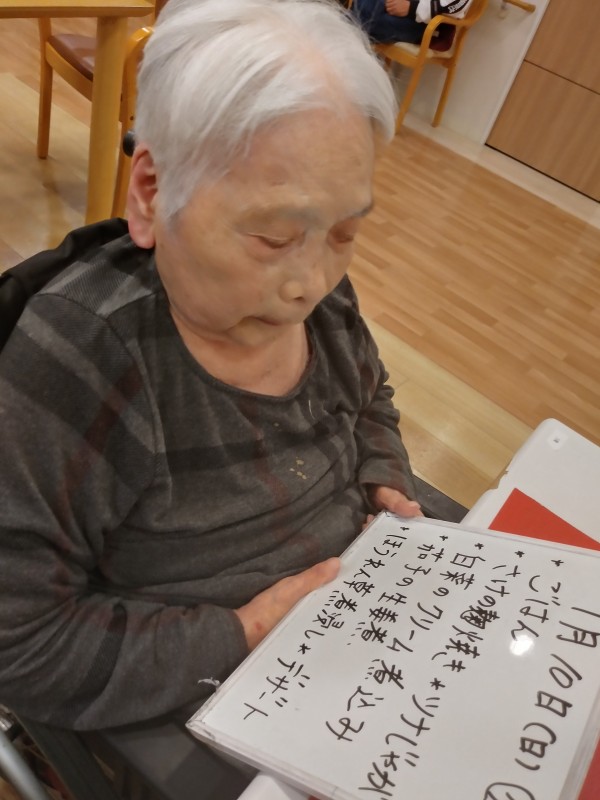 1月10日(日)
* ごはん
* さけの麹焼き * ツナじゃが
* 白菜のクリーム煮込み
* 茄子の生姜煮.
* ほうれん草煮浸し * デザート